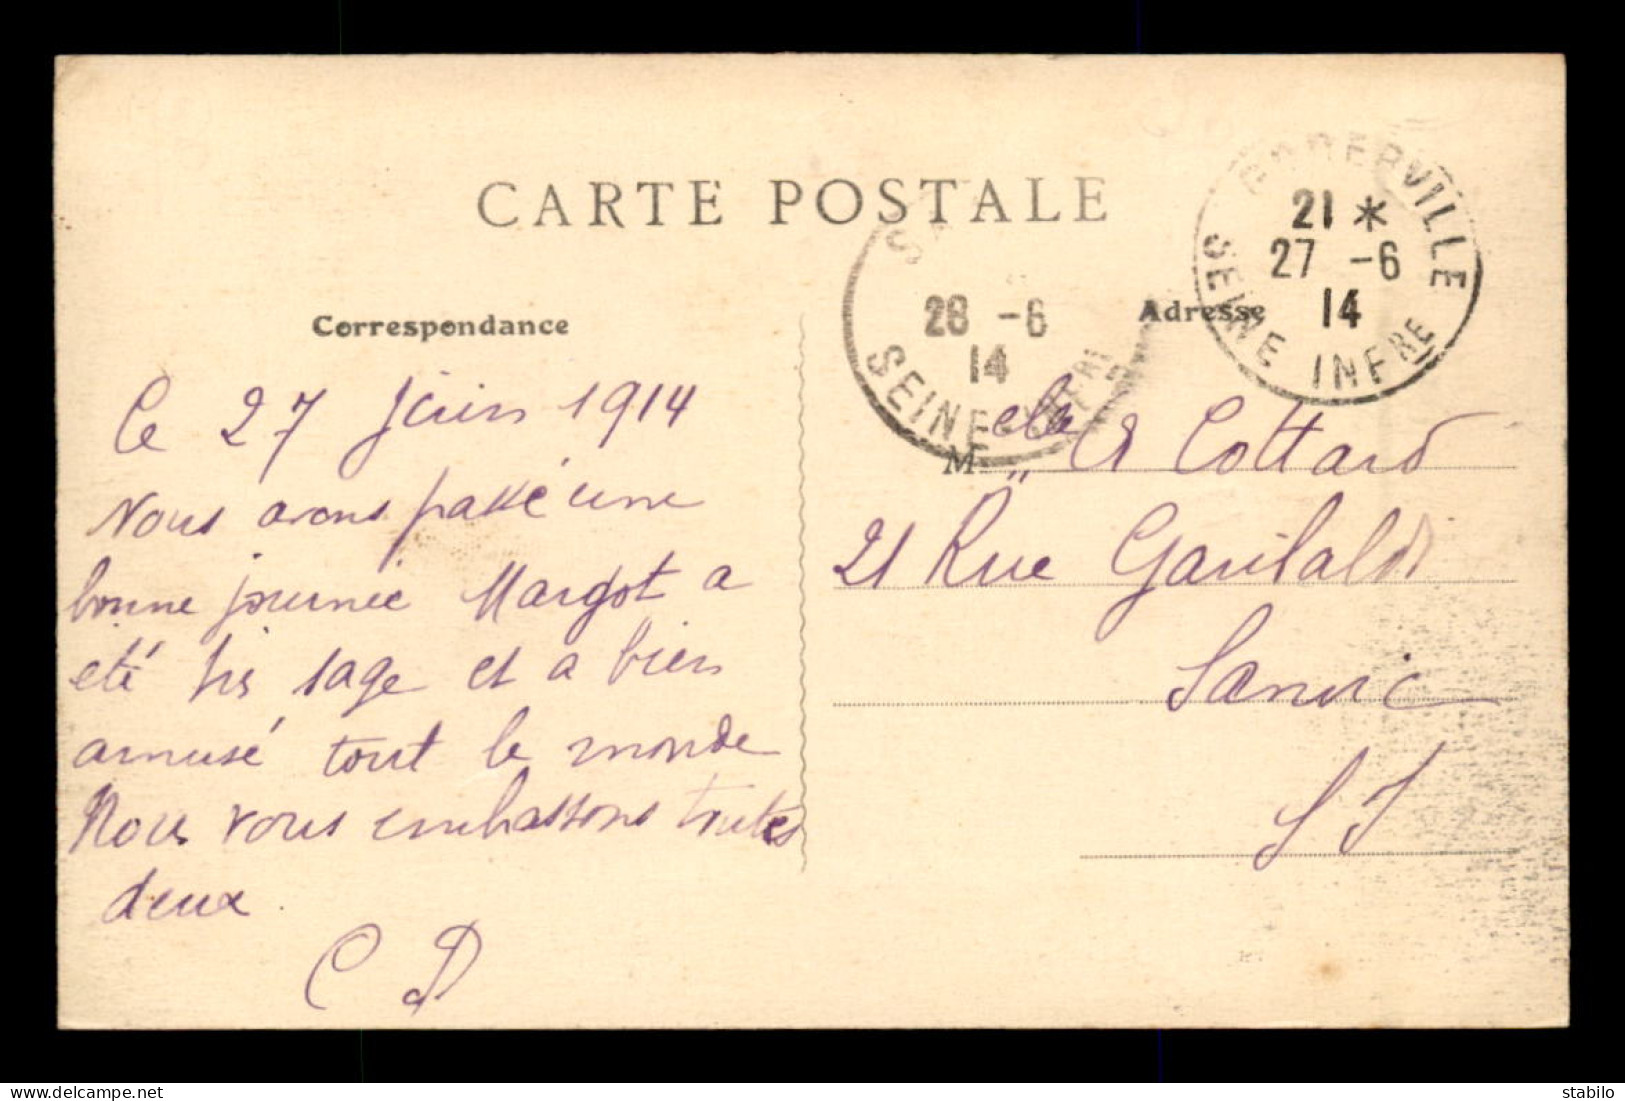 CARTE POSTALE
GODERVILLE
21 *
27 -6
14
SEINE INFRE
SA
28 -6
14
SEINE INFRE
Correspondance
Adresse
Le 27 Juin 1914
Nous avons passé une
bonne journée Margot a
été très sage et a bien
amusé tout le monde
Nous vous embrassons toutes
deux.
C D
Melle A Cottard
21 Rue Garibaldi
Sanvic
S I
stabilo